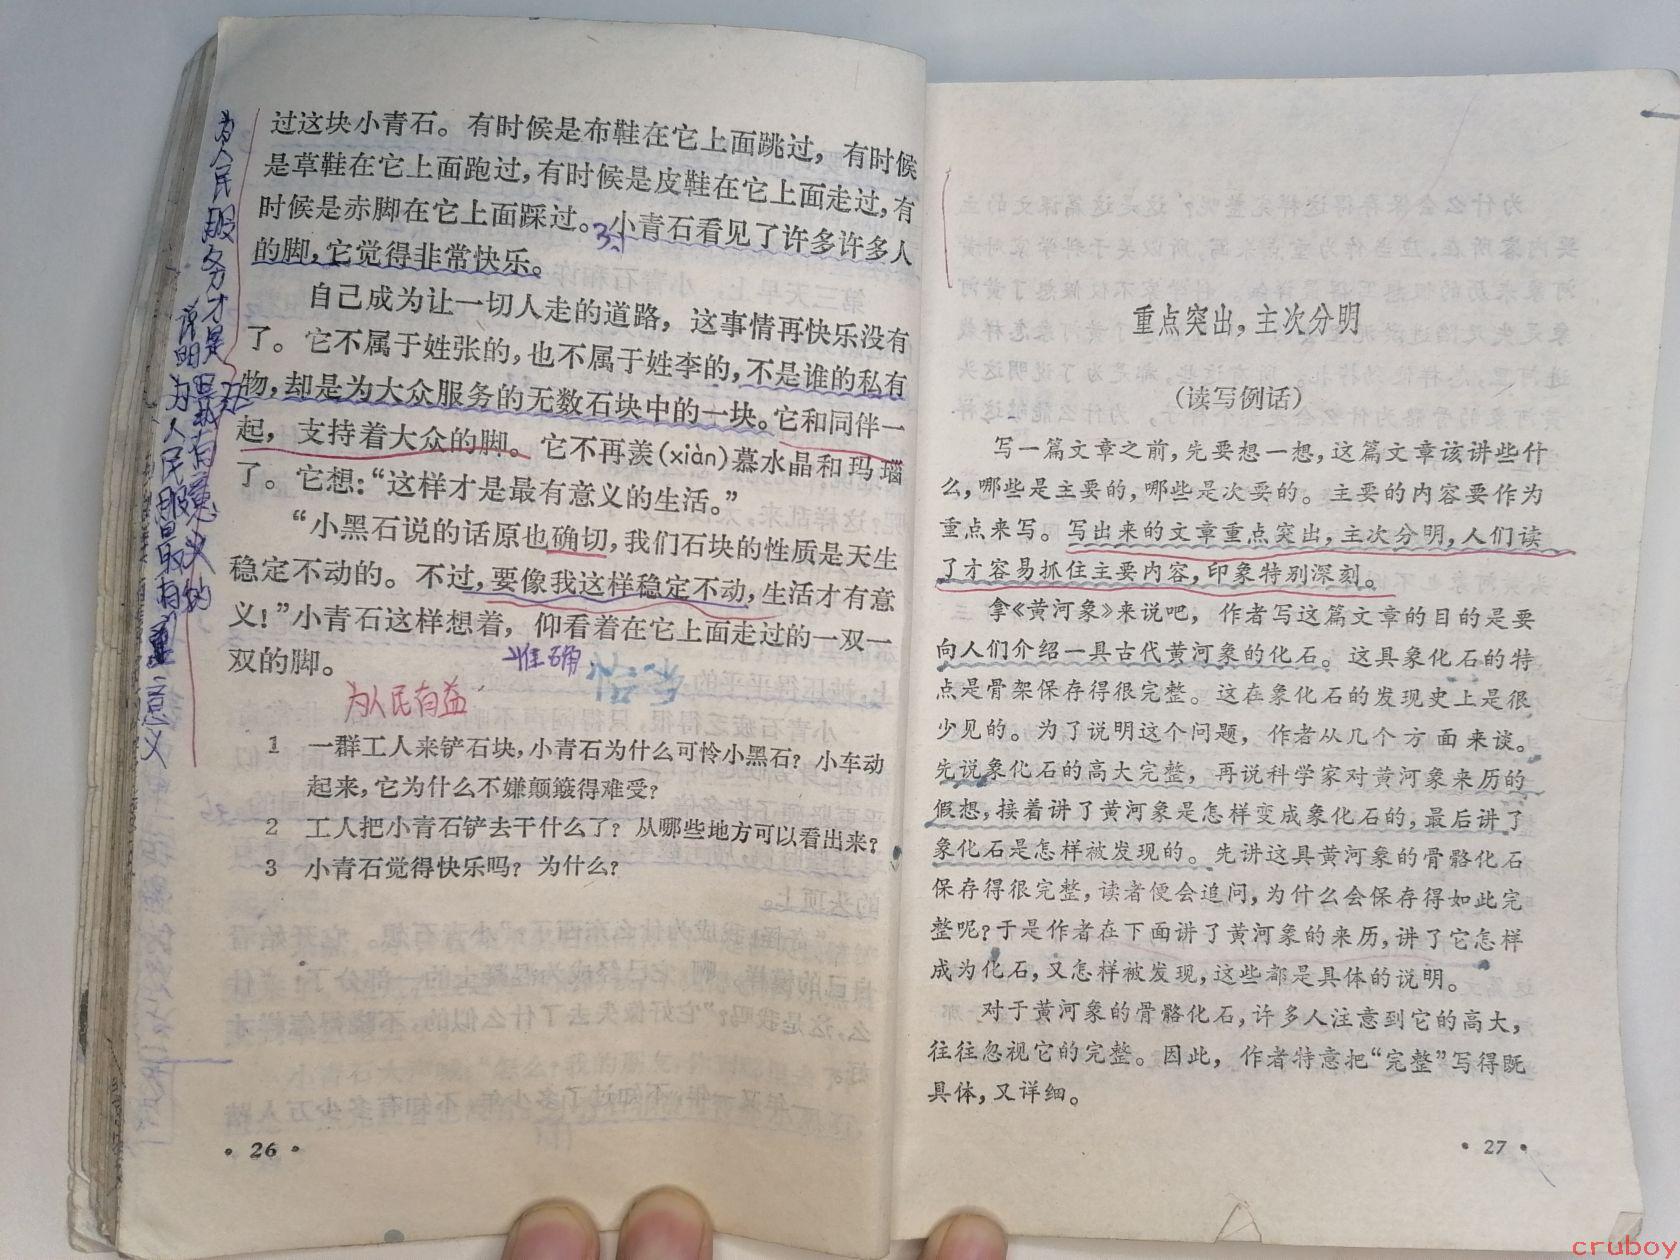 过这块小青石。有时候是布鞋在它上面跳过，有时候
是草鞋在它上面跑过，有时候是皮鞋在它上面走过，有
时候是赤脚在它上面踩过。小青石看见了许多许多人
的脚，它觉得非常快乐。
自己成为让一切人走的道路，这事情再快乐没有
了。它不属于姓张的，也不属于姓李的，不是谁的私有
物，却是为大众服务的无数石块中的一块。它和同伴一
起，支持着大众的脚。它不再羡(xiàn)慕水晶和玛瑙
了。它想：“这样才是最有意义的生活。”
“小黑石说的话原也确切，我们石块的性质是天生
稳定不动的。不过，要像我这样稳定不动，生活才有意
义！”小青石这样想着，仰看着在它上面走过的一双一
双的脚。
准确
为人民有益
1 一群工人来铲石块，小青石为什么可怜小黑石？小车动
起来，它为什么不嫌颠簸得难受？
2 工人把小青石铲去干什么了？从哪些地方可以看出来？
3 小青石觉得快乐吗？为什么？
为人民服务才是最有意义的
说明为人民服
意义
• 26 •
重点突出，主次分明
（读写例话）
写一篇文章之前，先要想一想，这篇文章该讲些什
么，哪些是主要的，哪些是次要的。主要的内容要作为
重点来写。写出来的文章重点突出，主次分明，人们读
了才容易抓住主要内容，印象特别深刻。
拿《黄河象》来说吧，作者写这篇文章的目的是要
向人们介绍一具古代黄河象的化石。这具象化石的特
点是骨架保存得很完整。这在象化石的发现史上是很
少见的。为了说明这个问题，作者从几个方面来谈。
先说象化石的高大完整，再说科学家对黄河象来历的
假想，接着讲了黄河象是怎样变成象化石的，最后讲了
象化石是怎样被发现的。先讲这具黄河象的骨骼化石
保存得很完整，读者便会追问，为什么会保存得如此完
整呢？于是作者在下面讲了黄河象的来历，讲了它怎样
成为化石，又怎样被发现，这些都是具体的说明。
对于黄河象的骨骼化石，许多人注意到它的高大，
往往忽视它的完整。因此，作者特意把“完整”写得既
具体，又详细。
• 27 •
cruboy